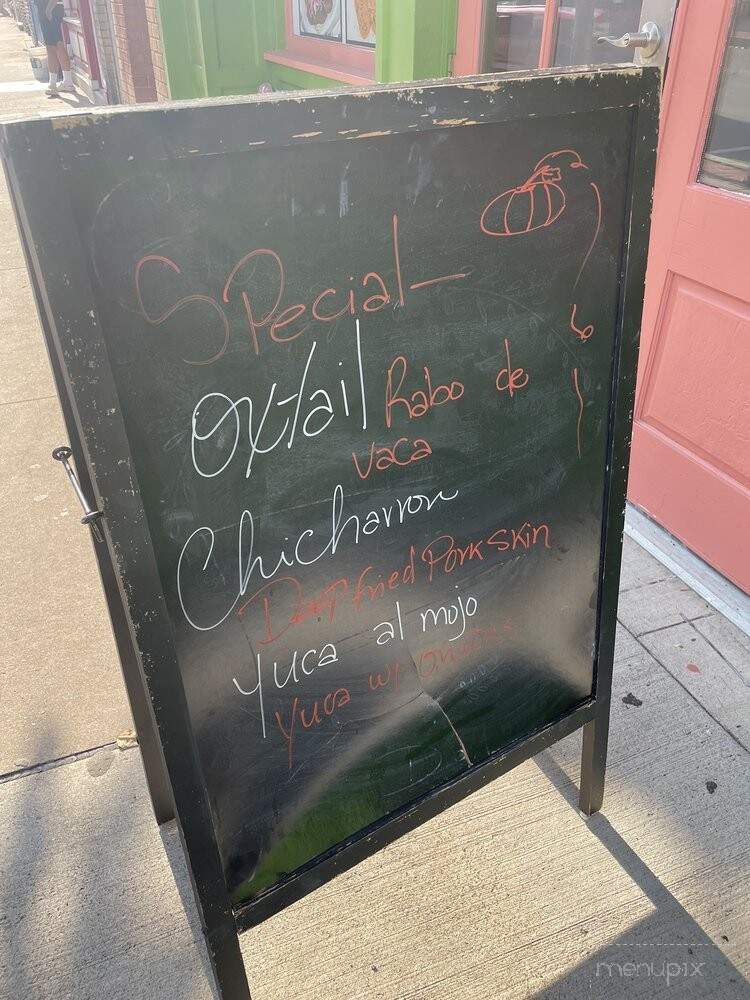 SPecial-
Oxtail Rabo de
vaca
Chicharron
Deep fried Pork skin
Yuca al mojo
Yuca w/ onions
menupix